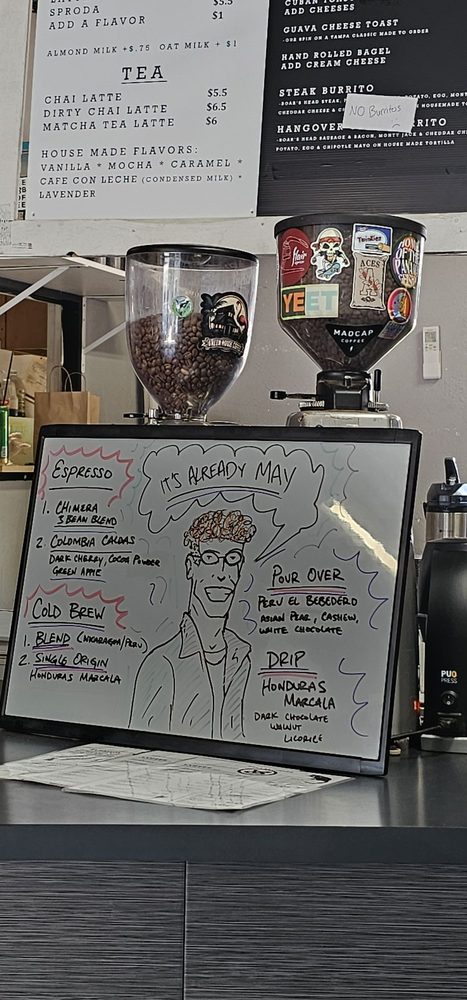 SPRODA $5.5
ADD A FLAVOR $1
ALMOND MILK +$.75 OAT MILK + $1
TEA
CHAI LATTE $5.5
DIRTY CHAI LATTE $6.5
MATCHA TEA LATTE $6
HOUSE MADE FLAVORS:
VANILLA * MOCHA * CARAMEL *
CAFE CON LECHE (CONDENSED MILK) *
LAVENDER
CUBAN TOAST
ADD CHEESES
GUAVA CHEESE TOAST
-OUR SPIN ON A TAMPA CLASSIC MADE TO ORDER
HAND ROLLED BAGEL
ADD CREAM CHEESE
STEAK BURRITO
NO Burritos
HANGOVER
POTATO, EGG & CHIPOTLE MAYO ON HOUSE MADE TORTILLA
Flair
Twinkies
ACES
YEET
MADCAP
COFFEE
ESPRESSO
1. CHIMERA
3 BEAN BLEND
2. COLOMBIA CALDAS
DARK CHERRY, COCOA POWDER
GREEN APPLE
COLD BREW
1. BLEND (NICARAGUA/PERU)
2. SINGLE ORIGIN
HONDURAS MARCALA
IT'S ALREADY MAY
POUR OVER
PERU EL BEBEDERO
ASIAN PEAR, CASHEW,
WHITE CHOCOLATE
DRIP
HONDURAS
MARCALA
DARK CHOCOLATE
WALNUT
LICORICE
PUQ
PRESS